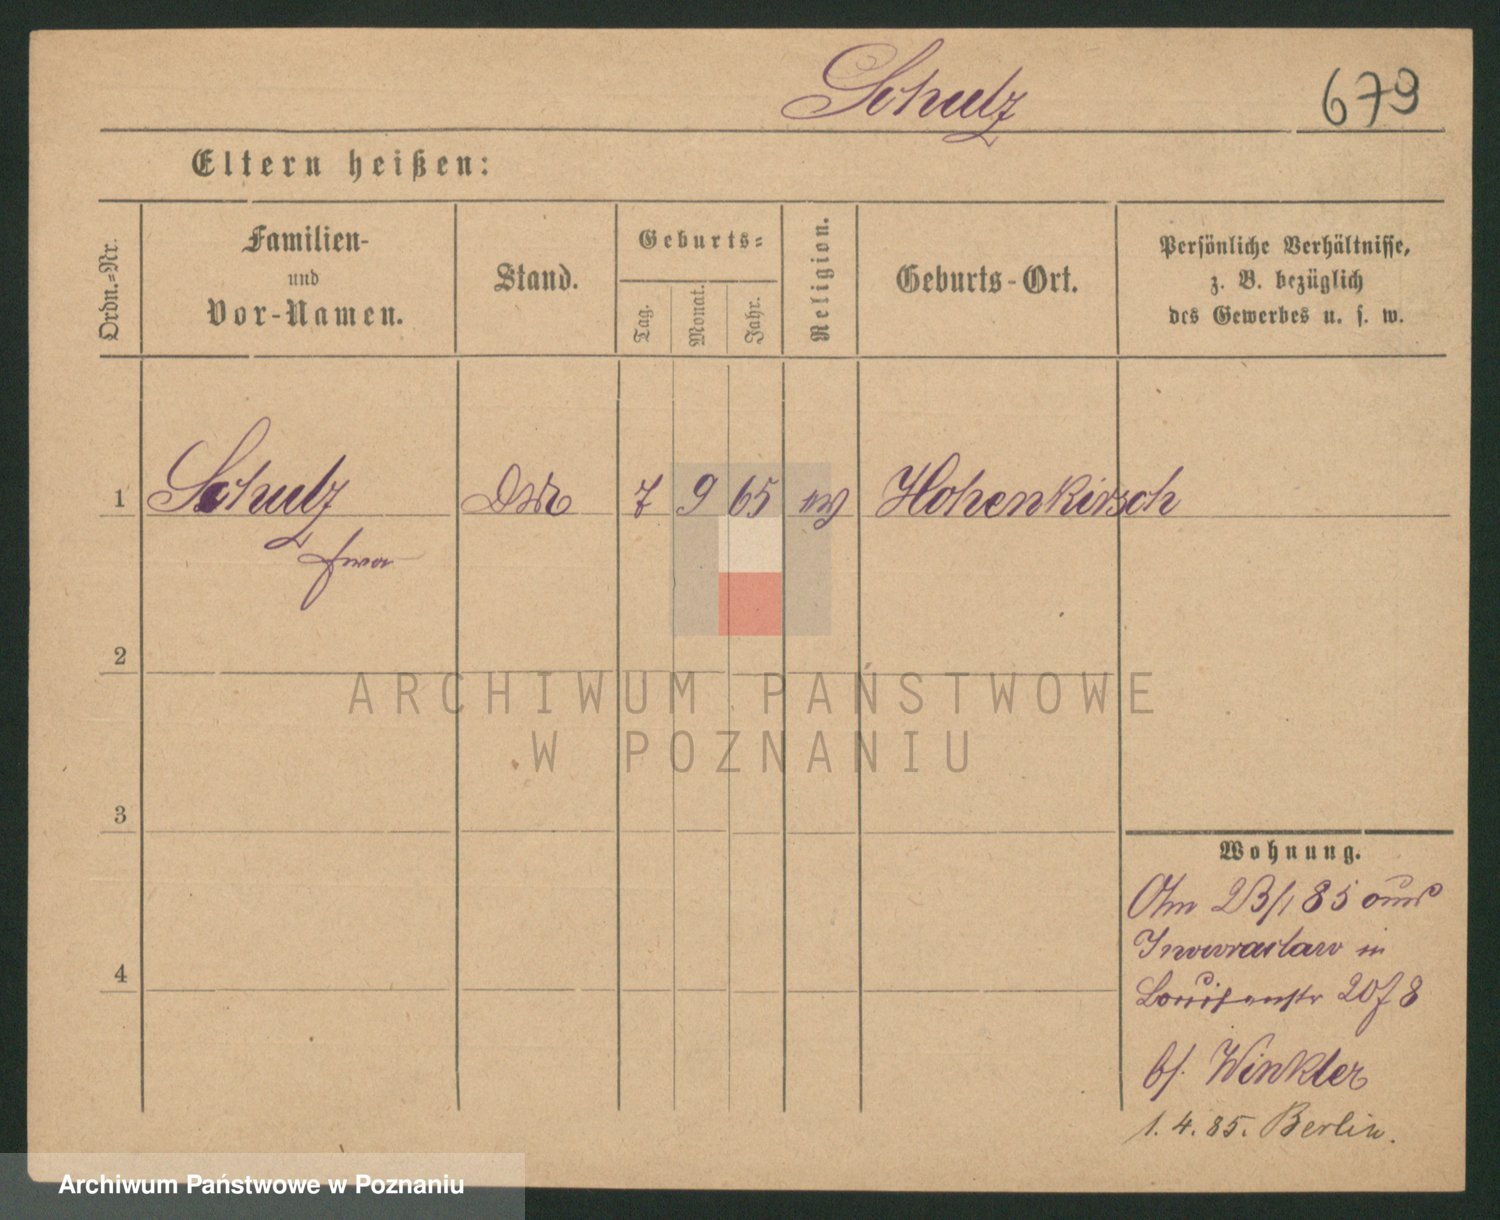 Schulz
679
Eltern heißen:
Ordn.=Nr.
Familien-
und
Vor-Namen.
Stand.
Geburts=
Tag.
Monat.
Jahr.
Religion.
Geburts-Ort.
Persönliche Verhältnisse,
z. B. bezüglich
des Gewerbes u. s. w.
1 Schulz 7 9 65 Hohenkirsch
2
ARCHIWUM PAŃSTWOWE
W POZNANIU
3
Wohnung.
23/1 85 aus
Inowraclaw in
Louisenstr 20 8
bf. Winkler
4
1. 4. 85. Berlin.
Archiwum Państwowe w Poznaniu